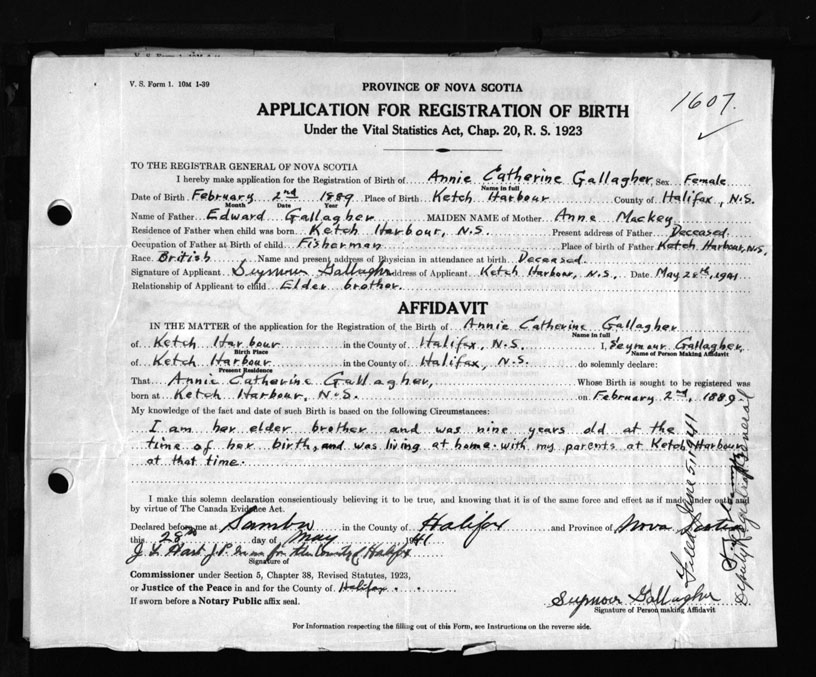 V. S. Form 1. 10M 1-39
1607.
PROVINCE OF NOVA SCOTIA
APPLICATION FOR REGISTRATION OF BIRTH
Under the Vital Statistics Act, Chap. 20, R. S. 1923
TO THE REGISTRAR GENERAL OF NOVA SCOTIA
I hereby make application for the Registration of Birth of Annie Catherine Gallagher Sex Female
Name in full
Date of Birth February 2nd 1889 Place of Birth Ketch Harbour County of Halifax, N.S.
Month Date Year
Name of Father Edward Gallagher MAIDEN NAME of Mother Anne Mackey
Residence of Father when child was born Ketch Harbour, N.S. Present address of Father Deceased.
Occupation of Father at Birth of child Fisherman Place of birth of Father Ketch Harbour, N.S.
Race British Name and present address of Physician in attendance at birth Deceased.
Signature of Applicant Seymour Gallagher Address of Applicant Ketch Harbour, N.S. Date May 28th, 1941
Relationship of Applicant to child Elder brother.
AFFIDAVIT
IN THE MATTER of the application for the Registration of the Birth of Annie Catherine Gallagher
Name in full
of Ketch Harbour in the County of Halifax, N.S. I, Seymour Gallagher,
Birth Place Name of Person Making Affidavit
of Ketch Harbour in the County of Halifax, N.S. do solemnly declare:
Present Residence
That Annie Catherine Gallagher, Whose Birth is sought to be registered was
born at Ketch Harbour, N.S. on February 2nd, 1889.
My knowledge of the fact and date of such Birth is based on the following Circumstances:
I am her elder brother and was nine years old at the
time of her birth, and was living at home with my parents at Ketch Harbour
at that time.
I make this solemn declaration conscientiously believing it to be true, and knowing that it is of the same force and effect as if made under oath and
by virtue of The Canada Evidence Act.
Declared before me at Sambro in the County of Halifax and Province of Nova Scotia
this 28th day of May 1941
J. L. Hart J.P. in and for the County of Halifax
Signature of
Commissioner under Section 5, Chapter 38, Revised Statutes, 1923,
or Justice of the Peace in and for the County of Halifax
If sworn before a Notary Public affix seal.
Seymour Gallagher
Signature of Person making Affidavit
For Information respecting the filling out of this Form, see Instructions on the reverse side.
Filed June 5 1941
Deputy Registrar General